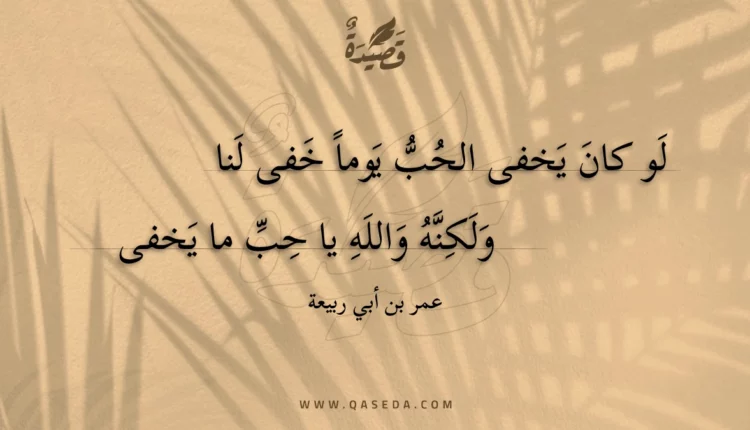 قَصِيدَةٌ
لَو كانَ يَخفى الحُبُّ يَوماً خَفى لَنا
وَلَكِنَّهُ وَاللَهِ يا حِبِّ ما يَخفى
عمر بن أبي ربيعة
WWW.QASEDA.COM